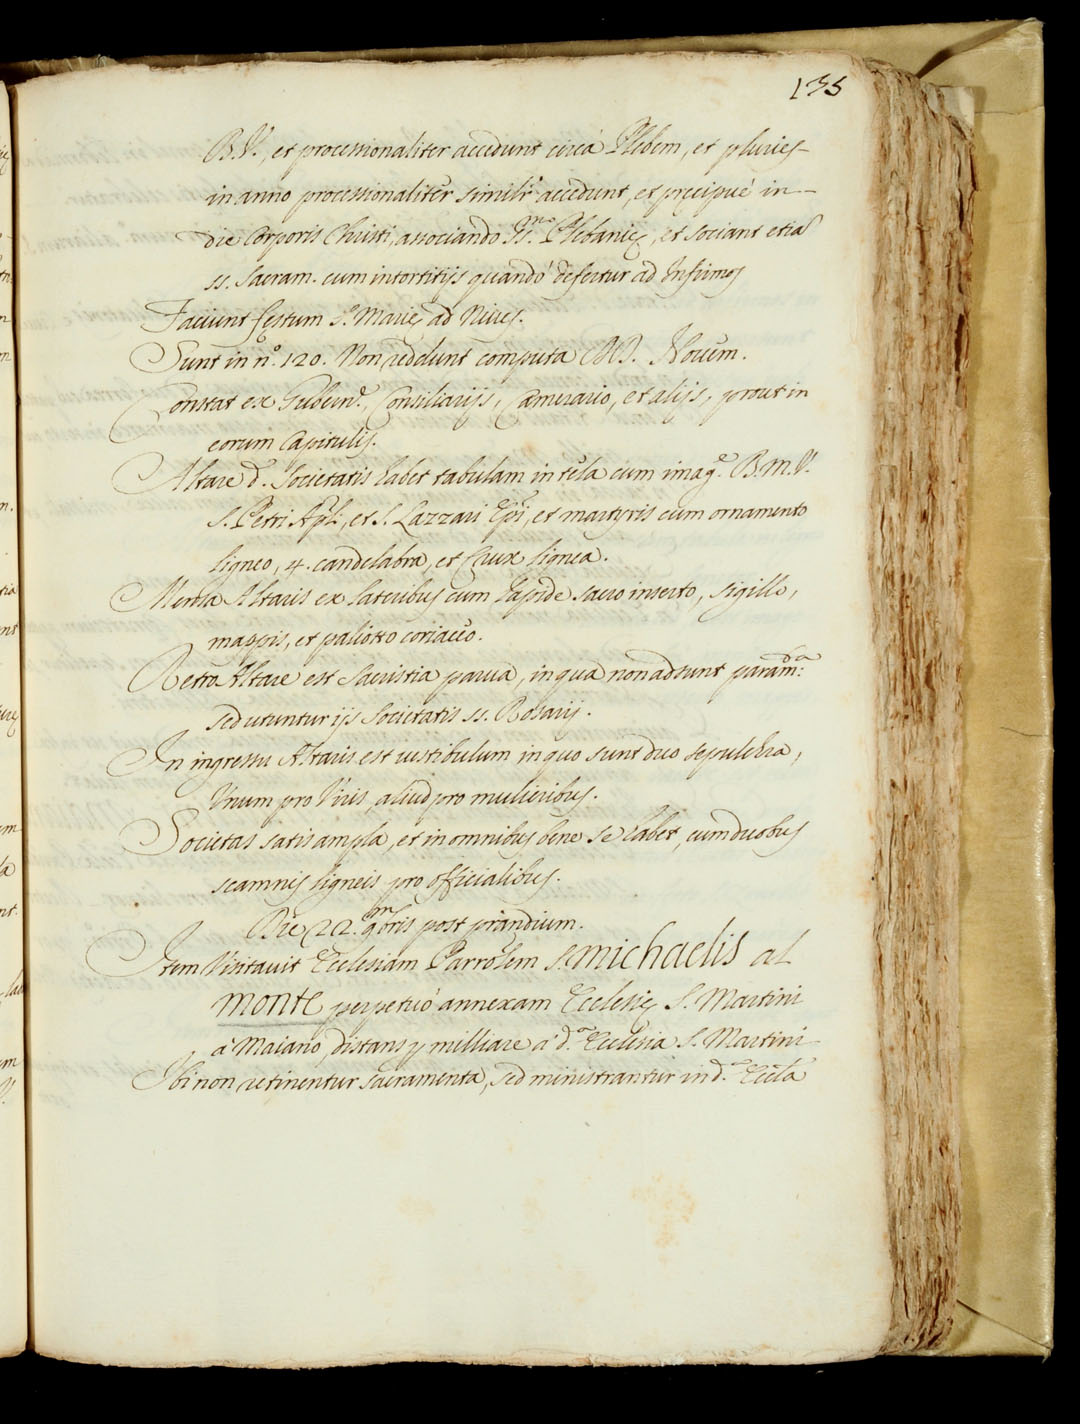 135
B.V., et processionaliter accedunt circà Plebem, et pluries
in anno processionaliter simil.r accedunt, et precipuè in
die Corporis Christi, associando Plebanię, et sociant etiã
ss. Sacram. cum intortitijs quandò defertur ad Infirmos
Faciunt festum S. Marię ad Nives.
Sunt in n.º 120. Non reddunt computa
Constat ex Gubern.e, Consiliarijs, Camerario, et alijs, prout in
eorum Capitulis.
Altare d. Societatis habet tabulam in tela cum imag.e B.M.V.
S. Petri Ap̃li, et S. Lazzari Ep̃i, et martyris cum ornamento
ligneo, 4. candelabra, et Crux lignea.
Mensa Altaris ex lateribus cum lapide sacro inserto, sigillo,
mappis, et paliotto coriaceo.
Retro Altare est Sacristia parva, in qua non adsunt param.da:
sed utuntur ijs Societatis ss. Rosarij.
In ingressu Altaris est vestibulum in quo sunt duo sepulchra,
Unum pro Viris, aliud pro mulieribus.
Societas satis ampla, et in omnibus bene se habet, cum duobus
scamnis ligneis pro officialibus.
Die 22. 9mbris post prandium.
Item Visitavit Ecclesiam Parrõlem S. Michaelis al
Monte perpetuò annexam Ecclesię S. Martini
à Maiano, distans p milliare à d.a Ecclesia S. Martini
Ibi non retinentur sacramenta, sed ministrantur in d.a Eccla